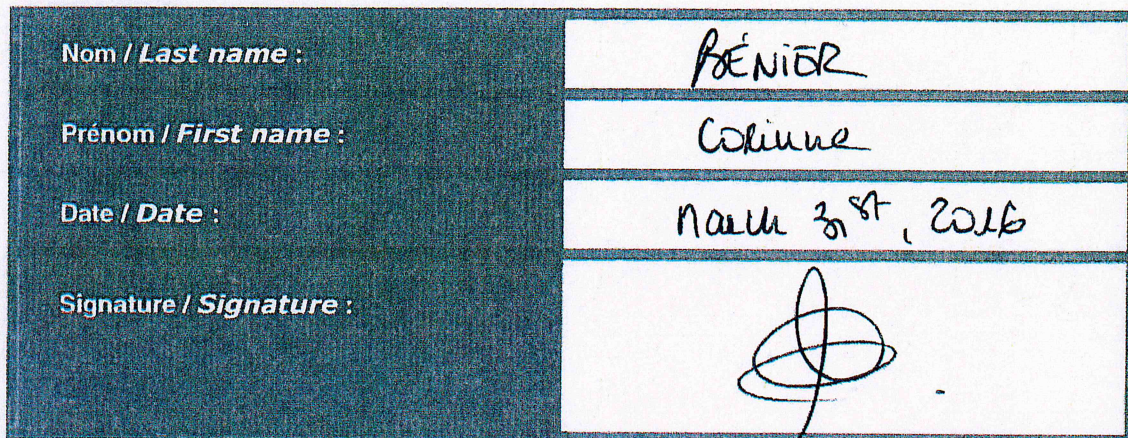 Nom / Last name : BÉNIER
Prénom / First name : Corinne
Date / Date : March 31st, 2016
Signature / Signature :